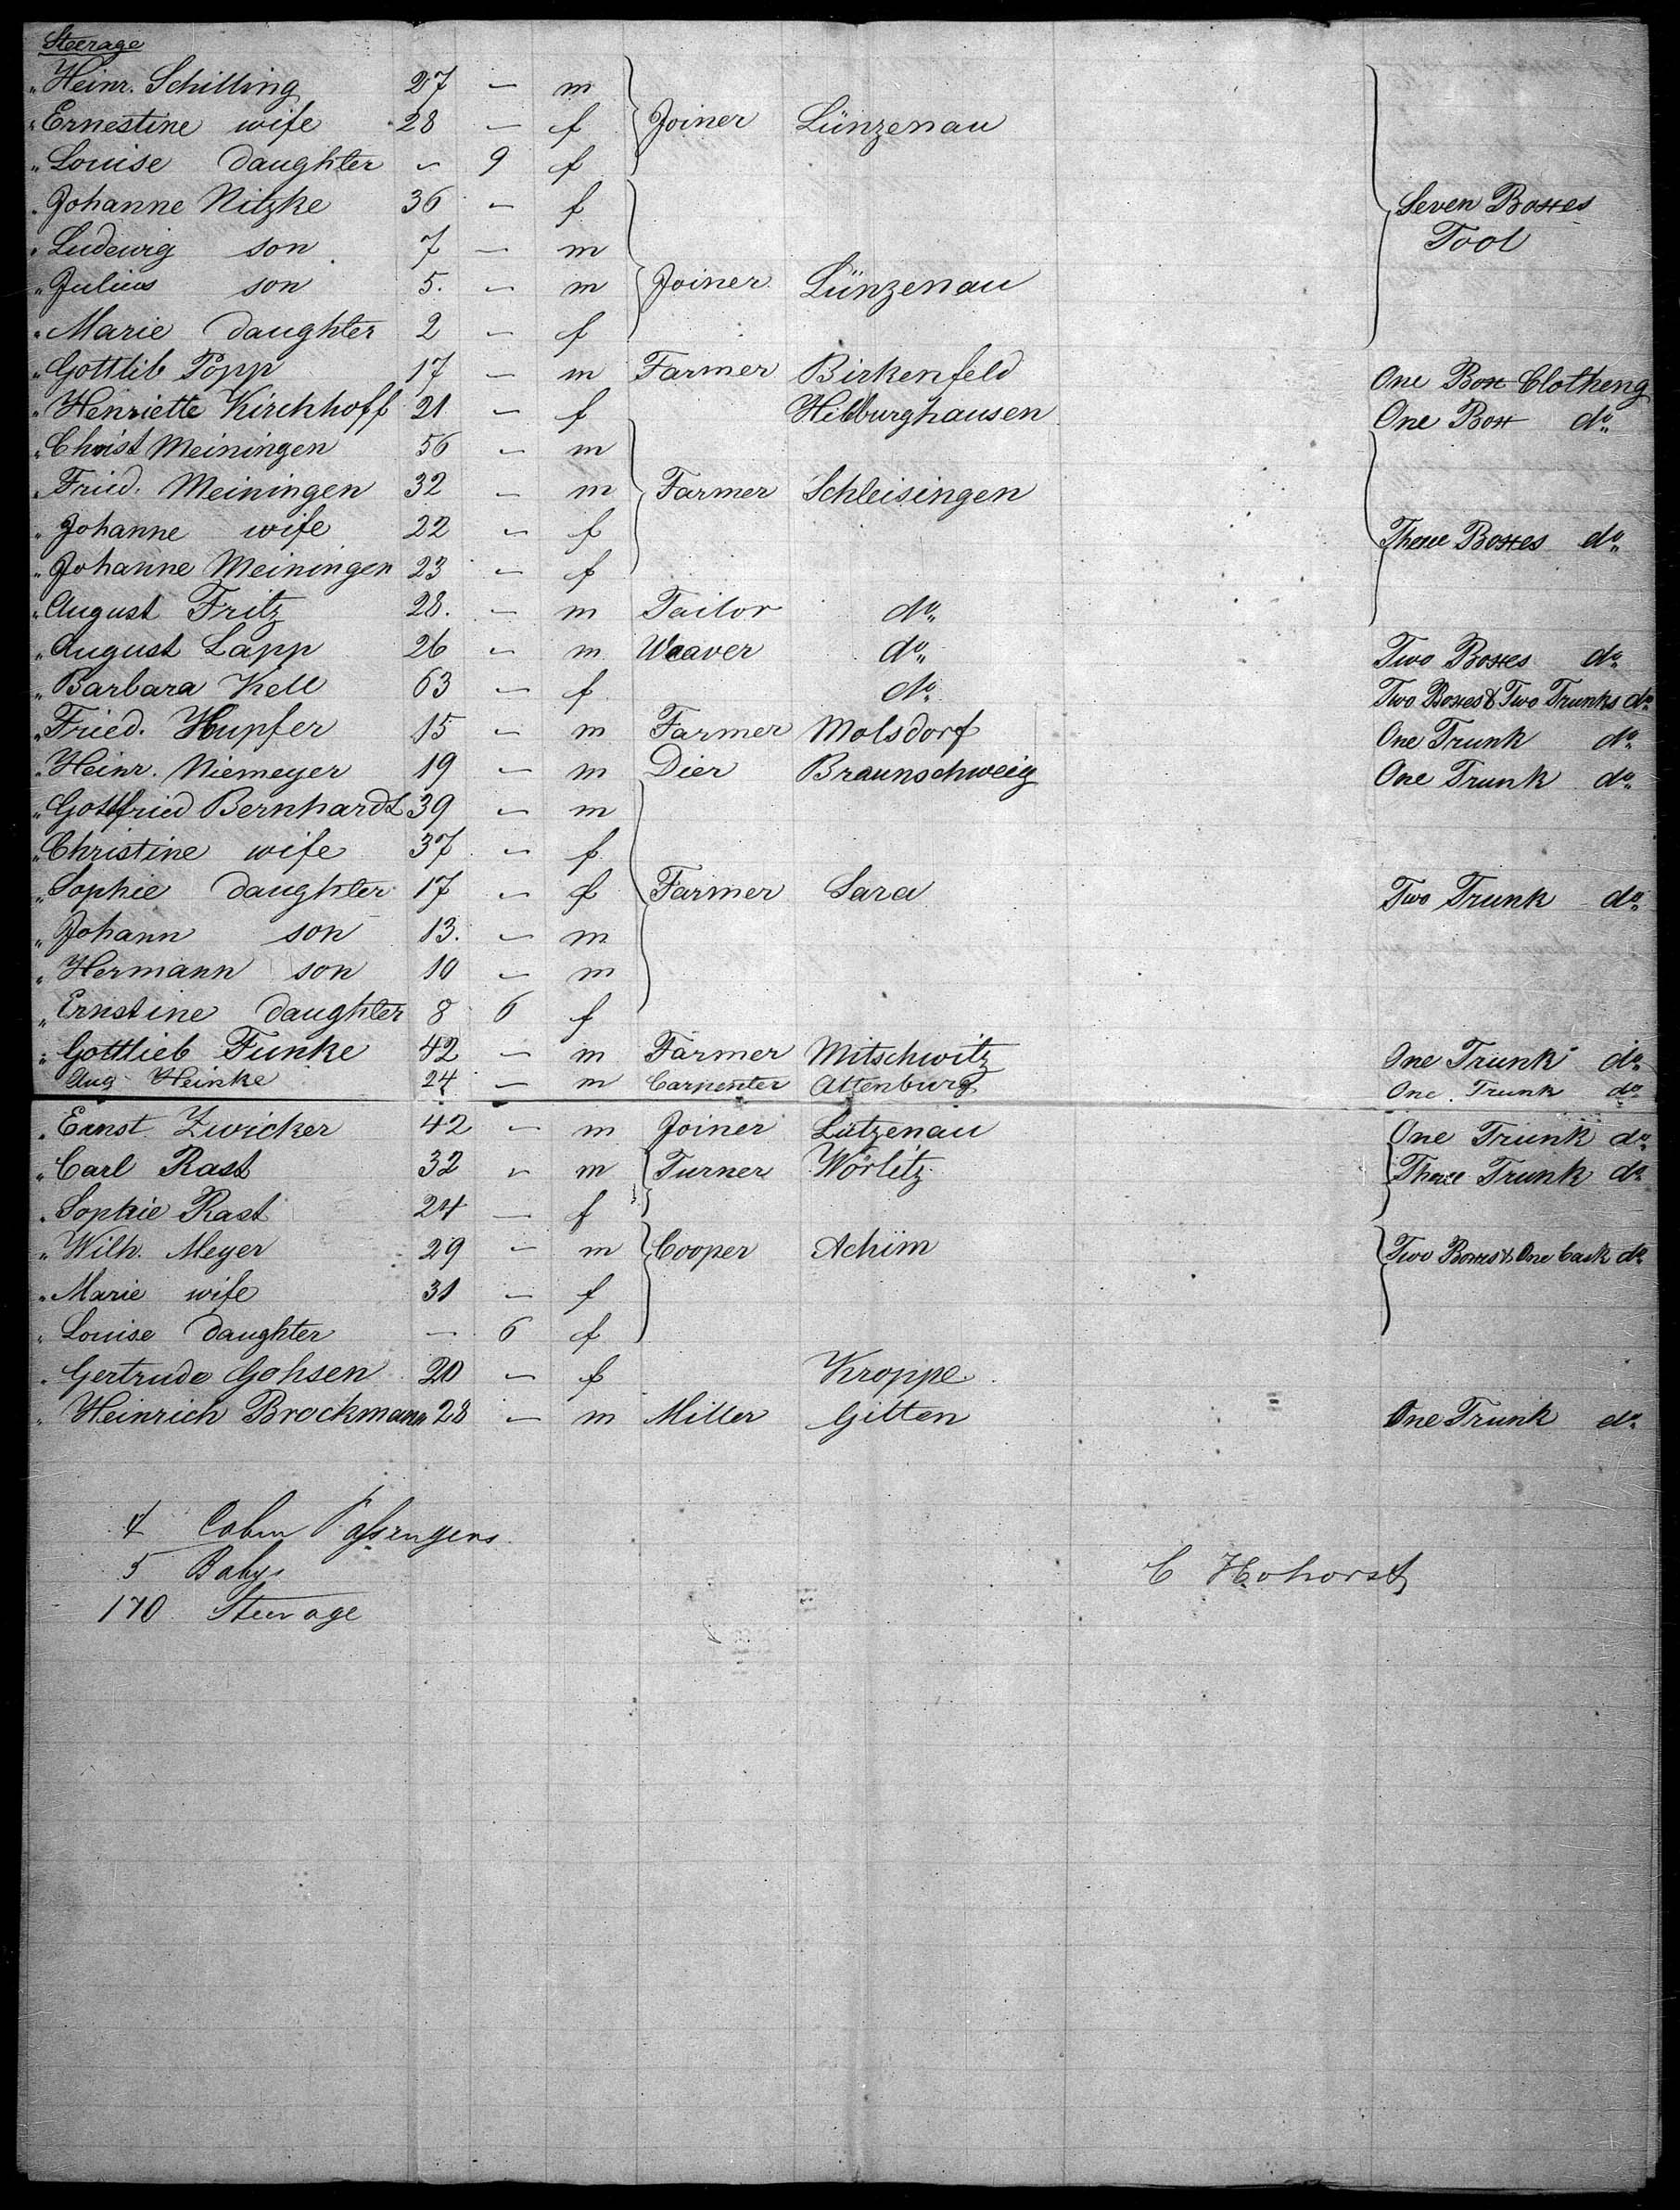 Steerage
" Heinr. Schilling 27 – m
" Ernestine wife 28 – f Joiner Lünzenau
" Louise daughter – 9 f
" Johanne Nitzke 36 – f Seven Boxes
" Ludewig son 7 – m Tool
" Julius son 5. – m Joiner Lünzenau
" Marie daughter 2 – f
" Gottlib Popp 17 – m Farmer Birkenfeld One Box Clotheng
" Henriette Kirchhoff 21 – f Hilburghausen One Box do.
" Christ Meiningen 56 – m
" Fried. Meiningen 32 – m Farmer Schleisingen
" Johanne wife 22 – f Three Boxes do.
" Johanne Meiningen 23 – f
" August Fritz 28. – m Tailor do.
" August Lapp 26 – m Weaver do. Two Boxes do.
" Barbara Kell 63 – f do. Two Boxes & Two Trunks do.
" Fried. Hupfer 15 – m Farmer Molsdorf One Trunk do.
" Heinr. Niemeyer 19 – m Dier Braunschweig One Trunk do.
" Gottfried Bernhardt 39 – m
" Christine wife 37 – f
" Sophie daughter 17 – f Farmer Sara Two Trunk do.
" Johann son 13. – m
" Hermann son 10 – m
" Ernstine daughter 8 6 f
" Gottlieb Funke 42 – m Farmer Mitschwitz One Trunk do.
Aug Heinke 24 – m Carpenter Altenburg One Trunk do.
" Ernst Zwicker 42 – m Joiner Lützenau One Trunk do.
" Carl Rast 32 – m Turner Wörlitz Three Trunk do.
" Sophie Rast 24 – f
" Wilh. Meyer 29 – m Cooper Achim Two Boxes & One Cask do.
" Marie wife 31 – f
" Louise daughter – 6 f
" Gertrude Gohsen 20 – f Kroppe
" Heinrich Brockmann 28 – m Miller Gitten One Trunk do.
4 Cabin Passengers
5 Babys C Hohorst
170 Steerage